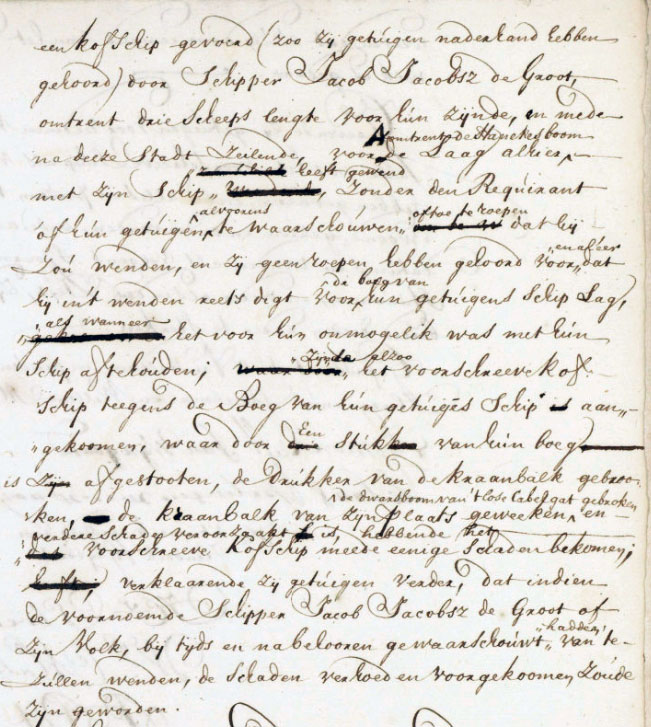 een kofschip gevoerd (zoo zij getuigen naderhand hebben
gehoord) door Schipper Jacob Jacobsz de Groot,
omtrent drie scheeps lengte voor hún zijnde, en mede
omtrent de Hanekesboom
na deeze Stadt Zeilende, voor de Laag alhier
heeft gewend
met zijn Schip, zonder den Requirant
alvorens of toe te roepen
of hún getúigen te waarschoúwen dat hij
en al eer
zoú wenden, en zij geen roepen hebben gehoord voor dat
de boeg van
hij in't wenden reets digt voor hún getuigens Schip Lag,
als wanneer
het voor hún onmogelik was met hún
zijnde alzoo
Schip aftehoúden; het voorschreeve kof-
schip teegens de Boeg van hún getuigēs Schip aan-
een
gekoomen, waar door stúk van hún boeg
is afgestooten, de drúkker van de kraanbalk gebroo-
de dwardboom van 't lose Cabelgat gebroken
ken, de kraanbalk van zijn plaats geweeken en
verdere schaden veroorzaakt is, hebbende het
voorschreeve kofschip meede eenige schaden bekomen;
verklaarende zij getuigen verder, dat indien
de voornoemde Schipper Jacob Jacobsz de Groot of
hadden
zijn volk, bij tijds en na behooren gewaarschoúwt van te
zúllen wenden, de schaden verhoed en voorgekoomen zoúde
zijn geworden.